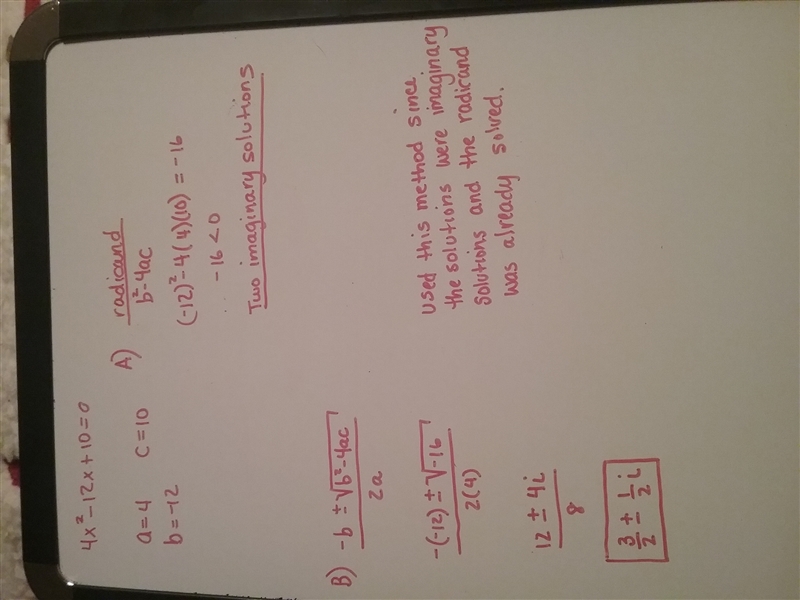 4x² - 12x + 10 = 0
a = 4 c = 10
b = -12
A) radicand
b² - 4ac
(-12)² - 4(4)(10) = -16
-16 < 0
Two imaginary solutions
B) -b ± √(b² - 4ac) / 2a
-(-12) ± √-16 / 2(4)
12 ± 4i / 8
3/2 ± 1/2 i
Used this method since
the solutions were imaginary
solutions and the radicand
was already solved.